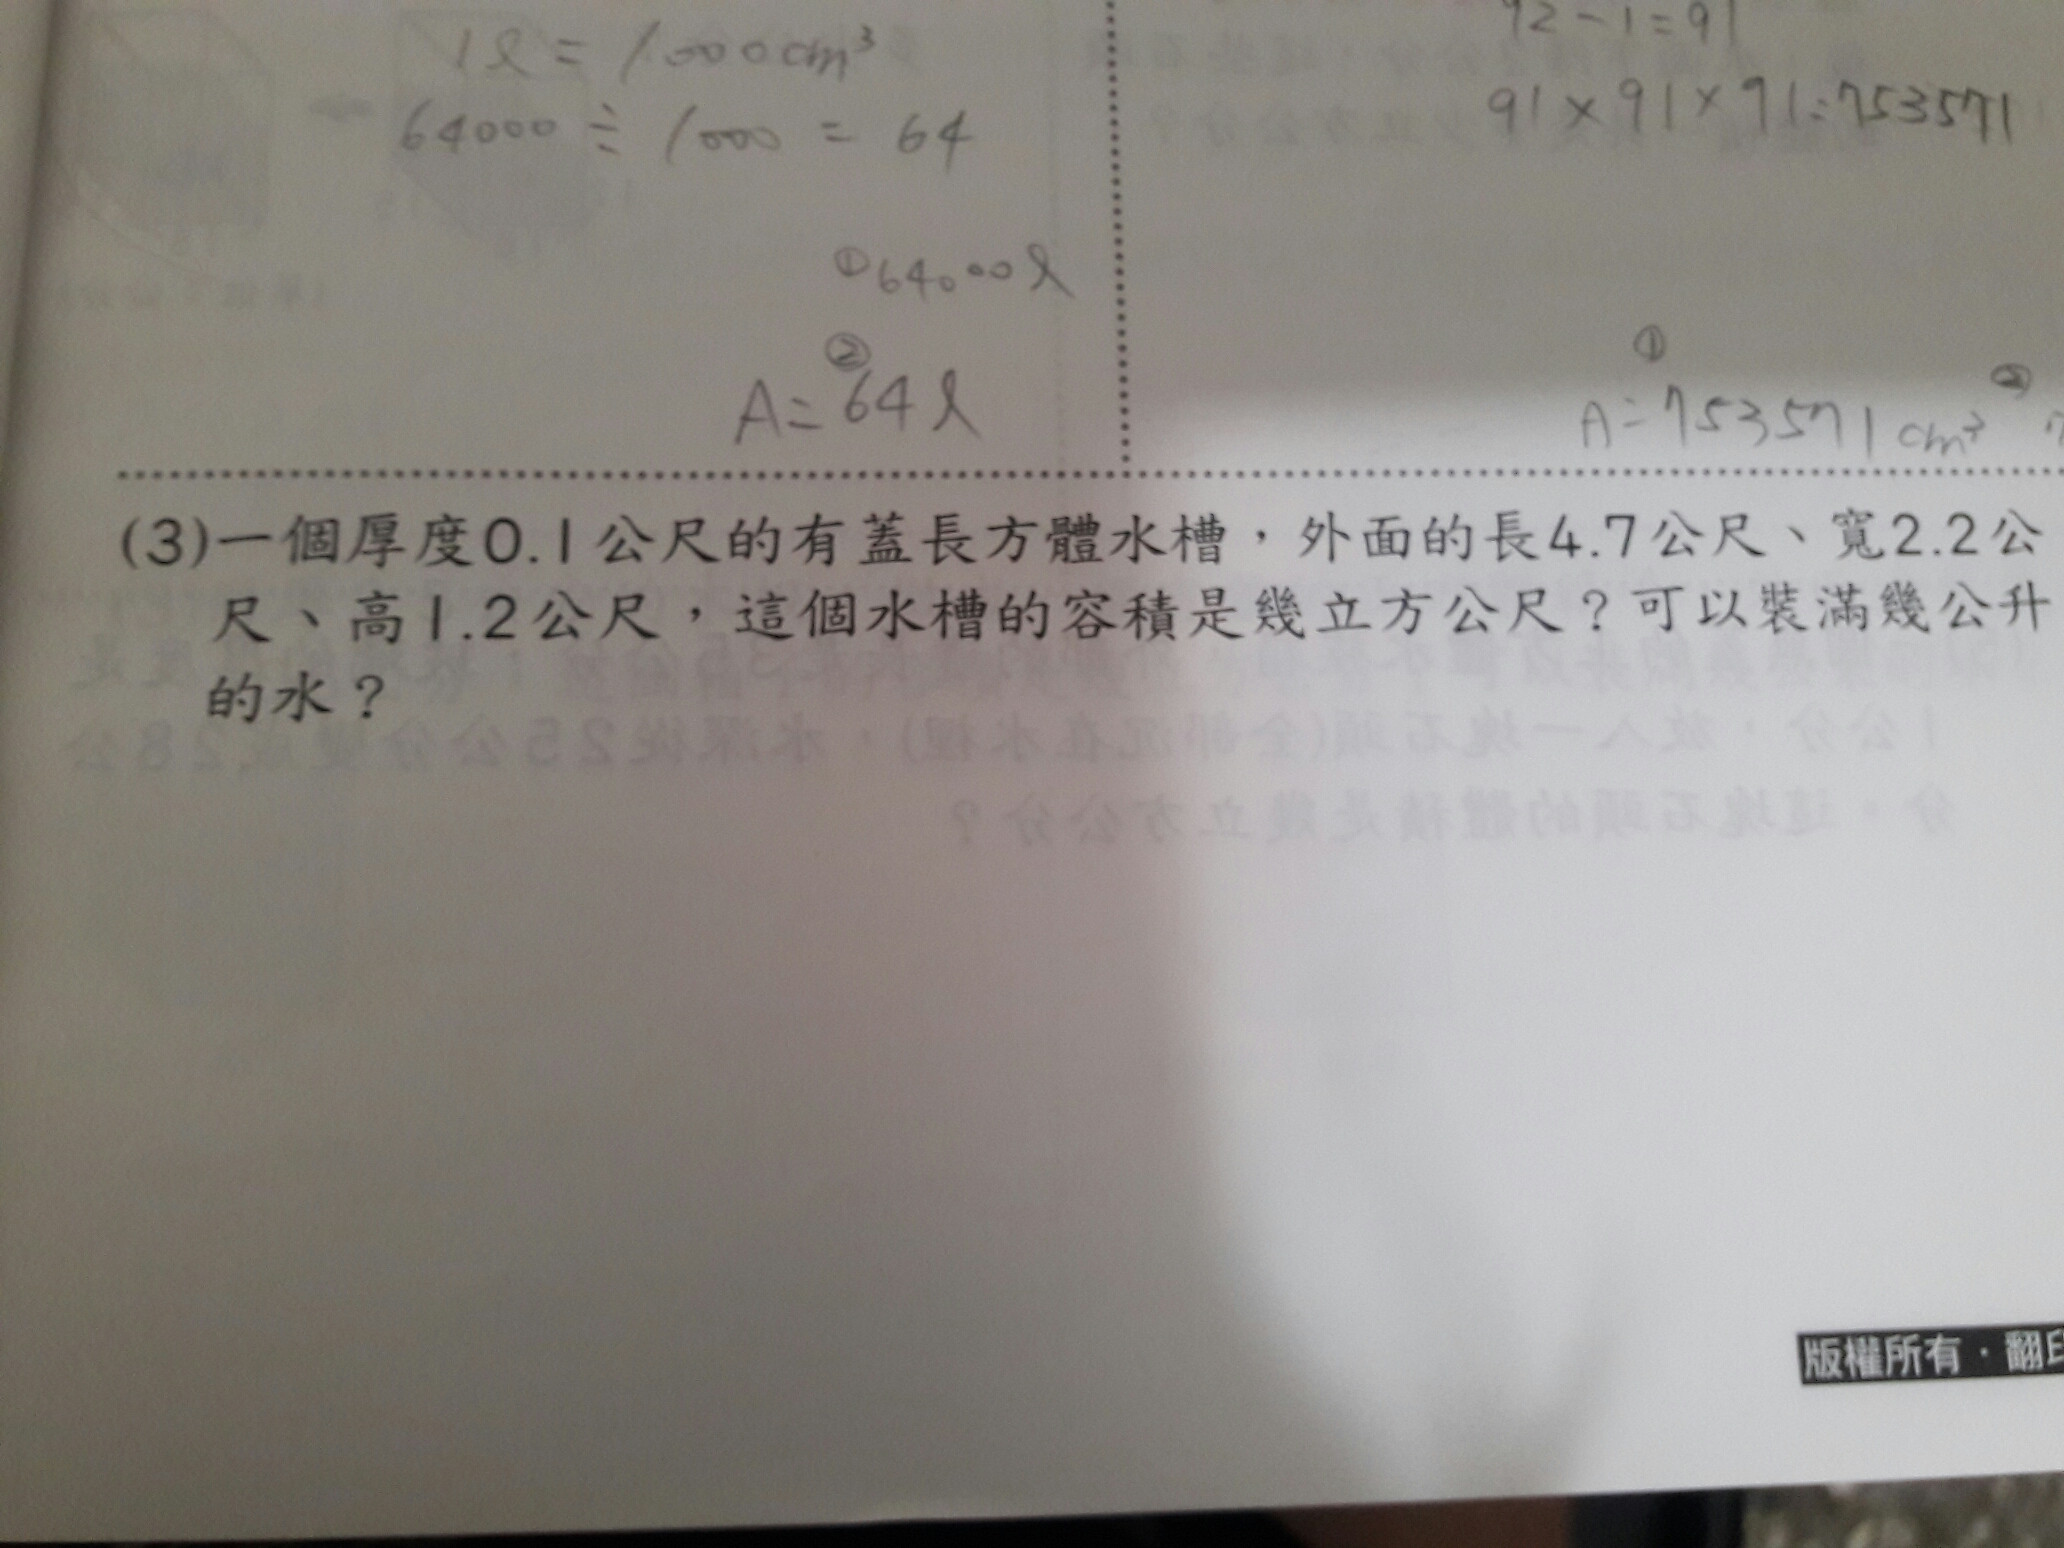 1ℓ = 1000cm³
64000 ÷ 1000 = 64
①64000ℓ
②
A=64ℓ
92-1=91
91×91×91=753571
①
②
A=753571cm³
(3)一個厚度0.1公尺的有蓋長方體水槽，外面的長4.7公尺、寬2.2公
尺、高1.2公尺，這個水槽的容積是幾立方公尺？可以裝滿幾公升
的水？
版權所有·翻印